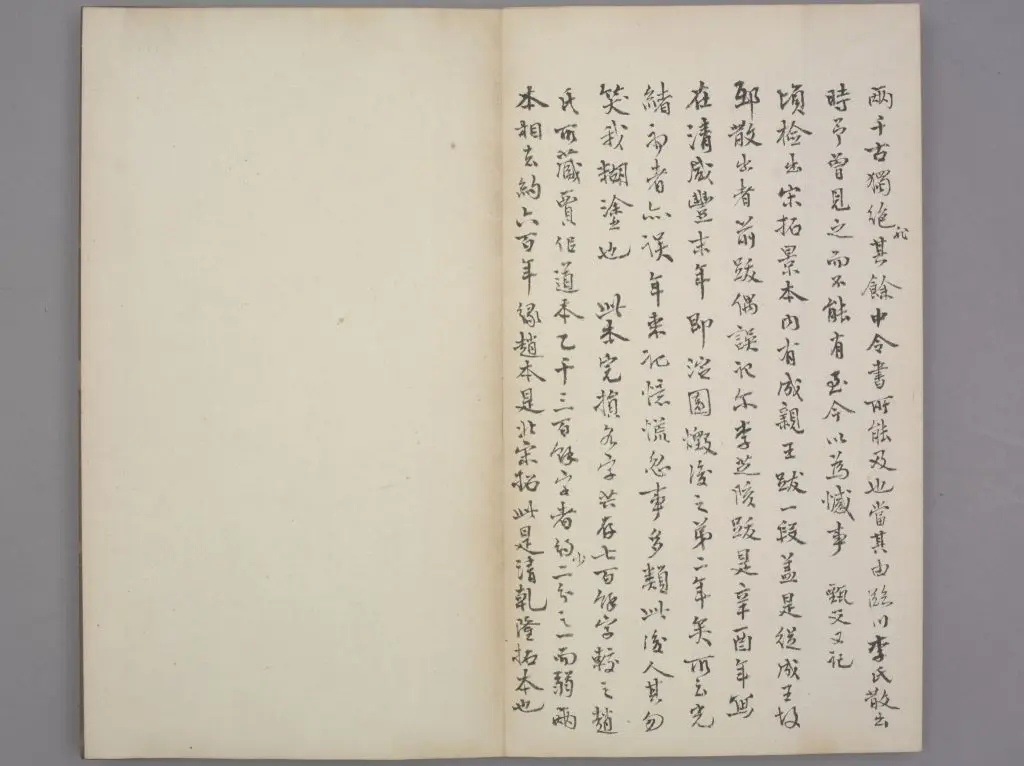 兩千古獨絕其餘中令書所能及也當其由臨川李氏散出
非
時予曾見之而不能有至今以為憾事 甄父又記
頃檢出宋拓景本內有成親王跋一段蓋是從成王故
邸散出者前跋偶誤記尔李芝陔跋是辛酉年無
在清咸豐末年即淀園燬後之第二年矣所云光
緒初者亦誤年來記憶慌忽事多類此後人其勿
笑我糊塗也 此本完損各字共存七百餘字較之趙
氏所藏賈佀道本乙千三百餘字者約二分之一而弱兩
少
本相去約六百年緣趙本是北宋拓此是清乾隆拓本也